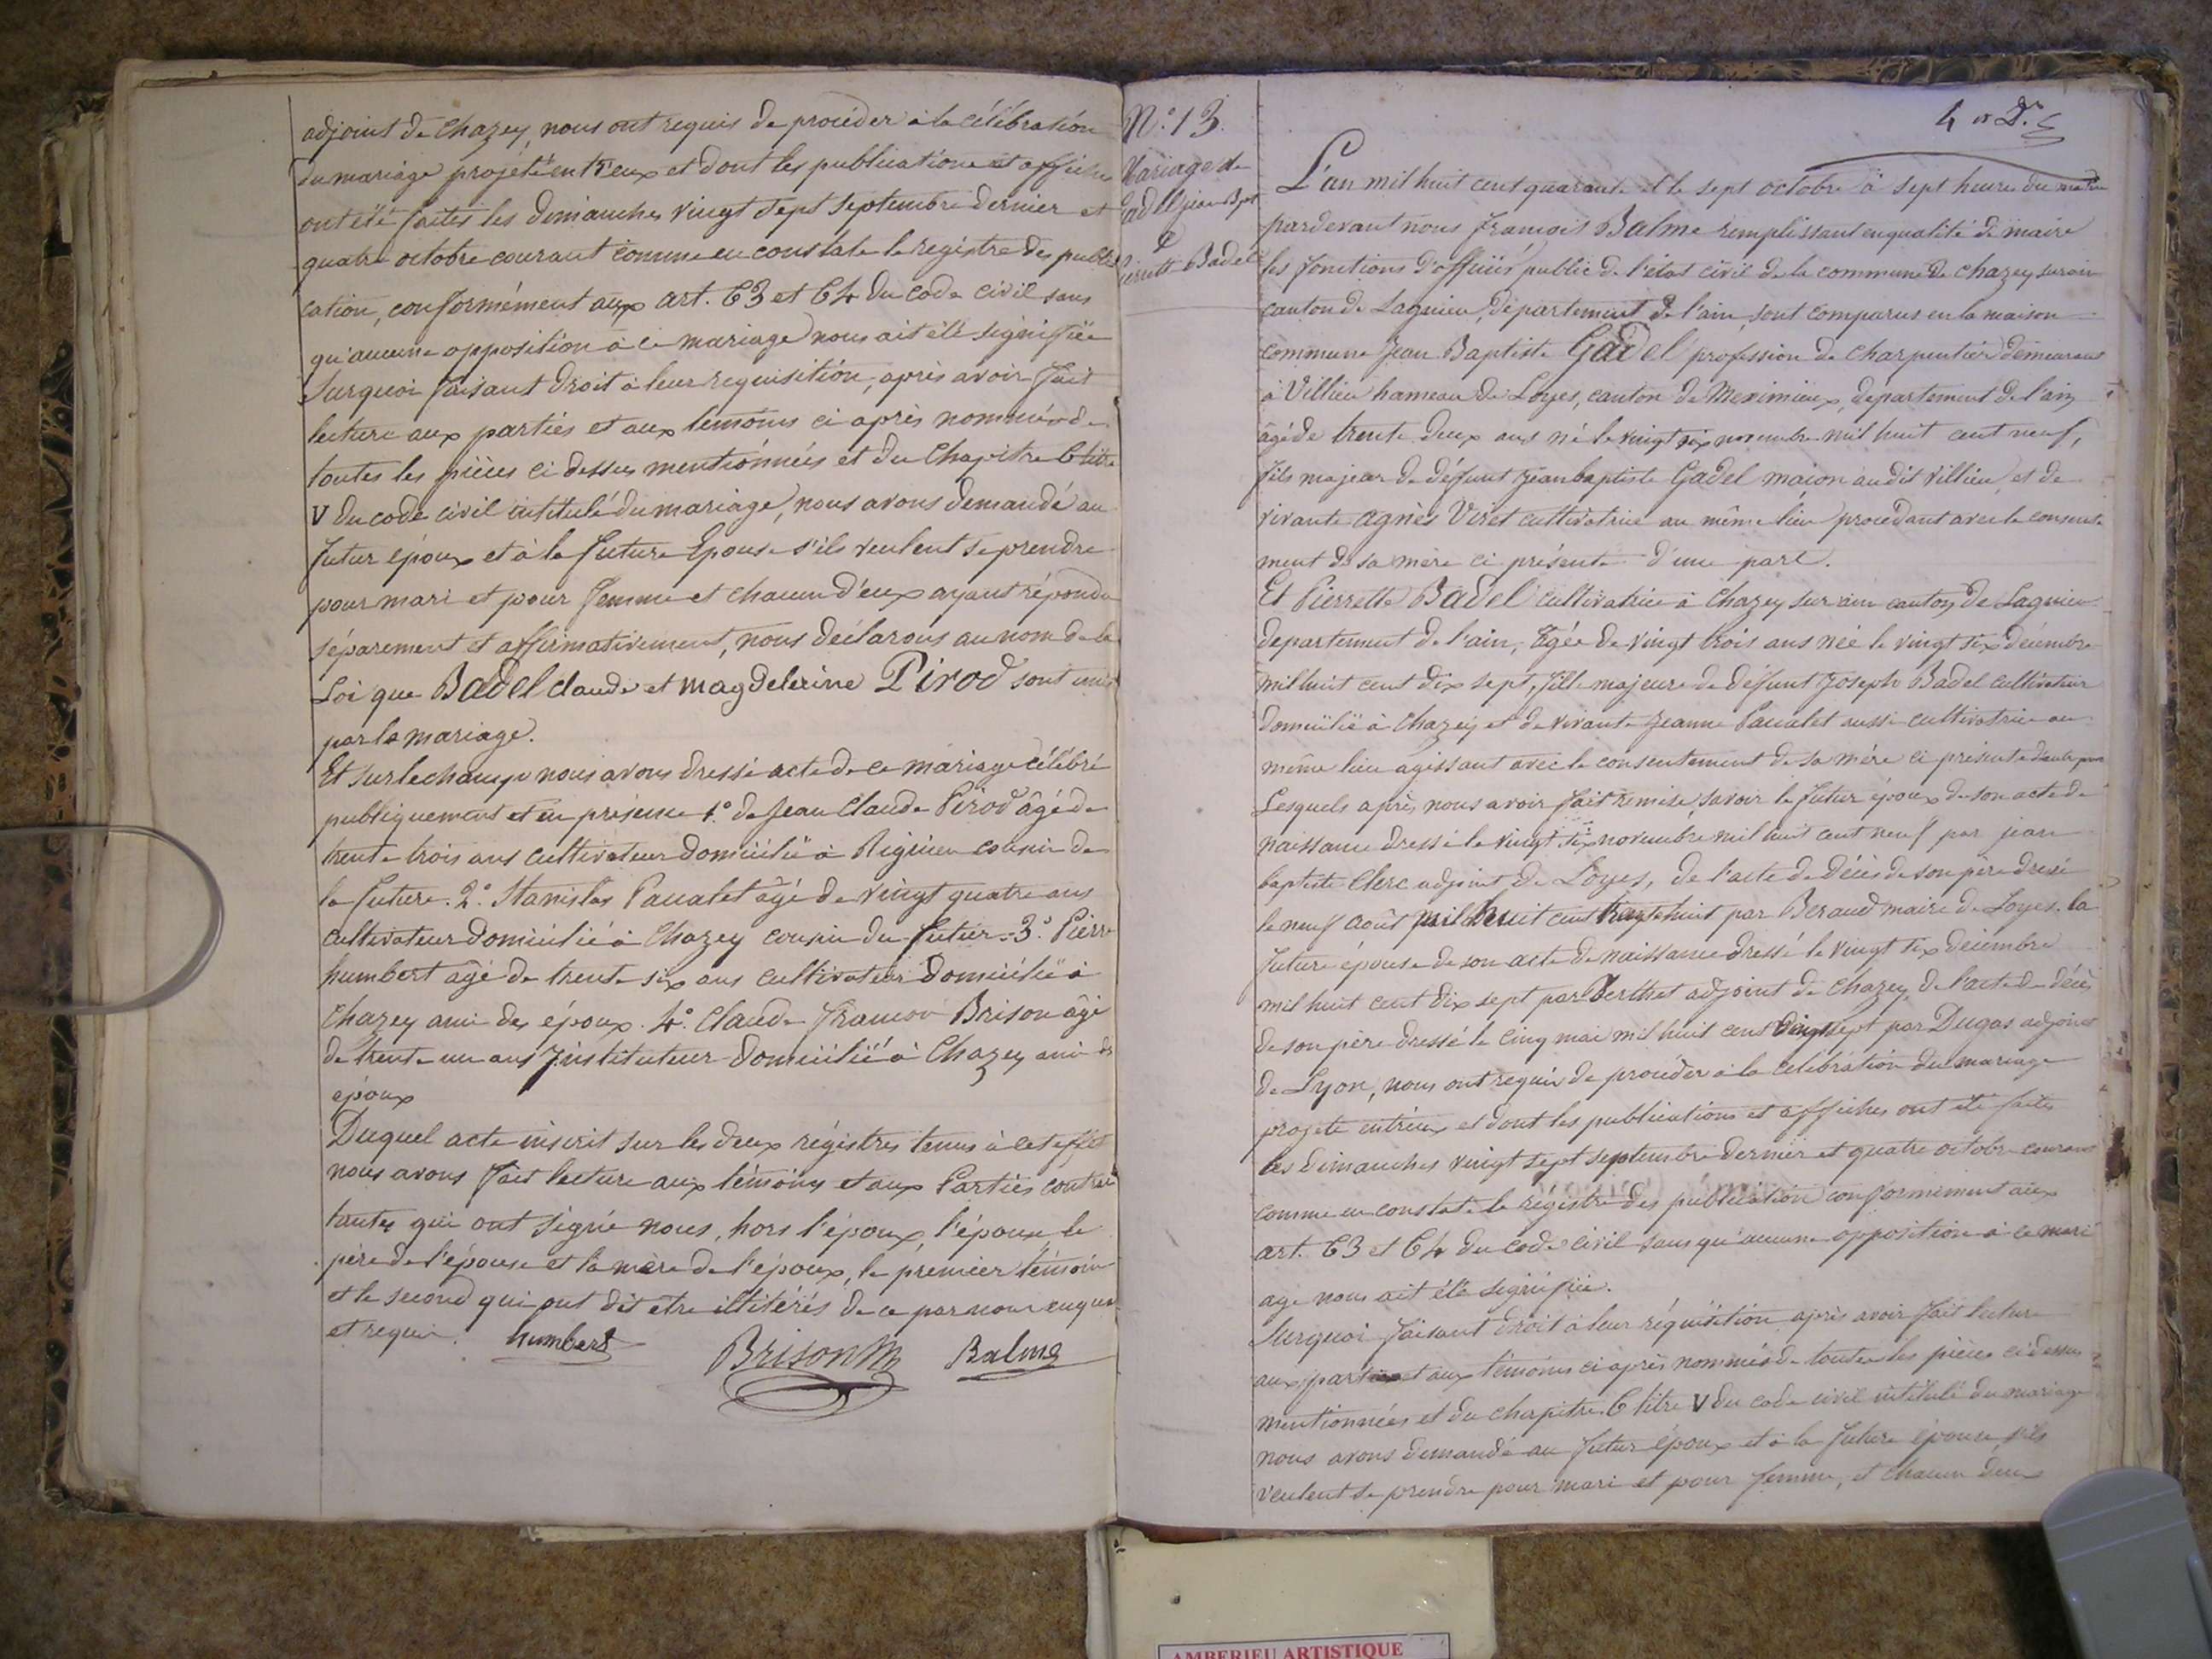 adjoint de Chazey, nous ont requis de procéder à la célébration
du mariage projété entr'eux et dont les publications et affiches
ont été faites les dimanches vingt sept septembre dernier et
quatre octobre courant comme en constate le registre des publi
cation, conformément aux art. 63 et 64 du code civil sans
qu'aucune opposition à ce mariage nous ait été signifiée
Surquoi faisant droit à leur requisition, après avoir fait
lecture aux parties et aux temoins ci après nommés de
toutes les pièces ci dessus mentionnées et du Chapitre 6 titre
V du code civil intitulé du mariage, nous avons demandé au
futur époux et à la future Epouse s'ils veulent se prendre
pour mari et pour femme et chacun d'eux ayant répondu
séparement et affirmativement, nous déclarons au nom de la
Loi que Badel claude et magdeleine Pirod sont unis
par le mariage.
Et surlechamp nous avons dressé acte de ce mariage célébré
publiquement et en présence 1.° de Jean Claude Pirod âgé de
trente trois ans cultivateur domicilié à Rignieu cousin de
la future. 2.° Stanislas Paualet âgé de vingt quatre ans
cultivateur domicilié à Chazey cousin du futur. 3.° Pierre
humbert âgé de trente six ans cultivateur domicilié à
Chazey ami des époux. 4.° Claude françois Brison âgé
de trente un ans Instituteur domicilié à Chazey ami des
époux
Duquel acte inscrit sur les deux régistres tenus à cet effet
nous avons fait lecture aux témoins et aux Parties contrac
tantes qui ont signé nous, hors l'époux, l'épouse le
père de l'épouse et la mère de l'époux, le premier témoin
et le second qui ont dit etre illitérés de ce par nous enquis
et requis. humbert Brison Balme
N.° 13.
Mariage de
Gadel jean Bpt
&
Pierrette Badel
4 et D.r
L'an mil huit cent quarante et le sept octobre à sept heures du matin
pardevant nous françois Balme remplissant en qualité de maire
les fonctions d'officiés public de l'état civil de la commune de Chazey sur ain
canton de Lagnieu, département de l'ain, sont comparus en la maison
commune Jean Baptiste Gadel profession de charpentier demeurant
à Villieu hameau de Loyes, canton de Meximieux, departement de l'ain
âgé de trente deux ans né le vingt six novembre mil huit cent neuf,
fils majeur de défunt Jean baptiste Gadel maçon audit Villieu et de
vivante agnès Viret cultivatrice au même lieu procédant avec le consente
ment de sa mère ci présente d'une part.
Et Pierrette Badel cultivatrice à Chazey sur ain canton de Lagnieu
departement de l'ain, âgée de vingt trois ans née le vingt six décembre
mil huit cent dix sept, fille majeure de défunt Joseph Badel cultivateur
domicilié à Chazey et de vivante Jeanne Paualet aussi cultivatrice au
même lieu agissant avec le consentement de sa mère ci présente d'autre part
Lesquels après nous avoir fait remise, savoir le futur époux de son acte de
naissance dressé le vingt six novembre mil huit cent neuf par jean
baptiste Clerc adjoint de Loyes, de l'acte de décès de son père dressé
le neuf août mil huit cent vingt huit par Beraud maire de Loyes. la
future épouse de son acte de naissance dressé le vingt six décembre
mil huit cent dix sept par Berthet adjoint de Chazey, de l'acte de décès
de son père dressé le cinq mai mil huit cent vingt sept par Dugas adjoint
de Lyon, nous ont requis de procéder à la celébration du mariage
projeté entr'eux et dont les publications et affiches ont été faites
les dimanches vingt sept septembre dernier et quatre octobre courant
comme en constate le régistre des publication conformément aux
art. 63 et 64 du code civil sans qu'aucune opposition à ce mari
age nous ait été signifiée.
Surquoi faisant droit à leur réquisition après avoir fait lecture
aux parties et aux témoins ci après nommés de toutes les pièces ci dessus
mentionnées et du chapitre 6 titre V du code civil intitulé du mariage
nous avons demandé au futur époux et à la future épouse s'ils
veulent se prendre pour mari et pour femme, et chacun deux
AMBERIEU ARTISTIQUE